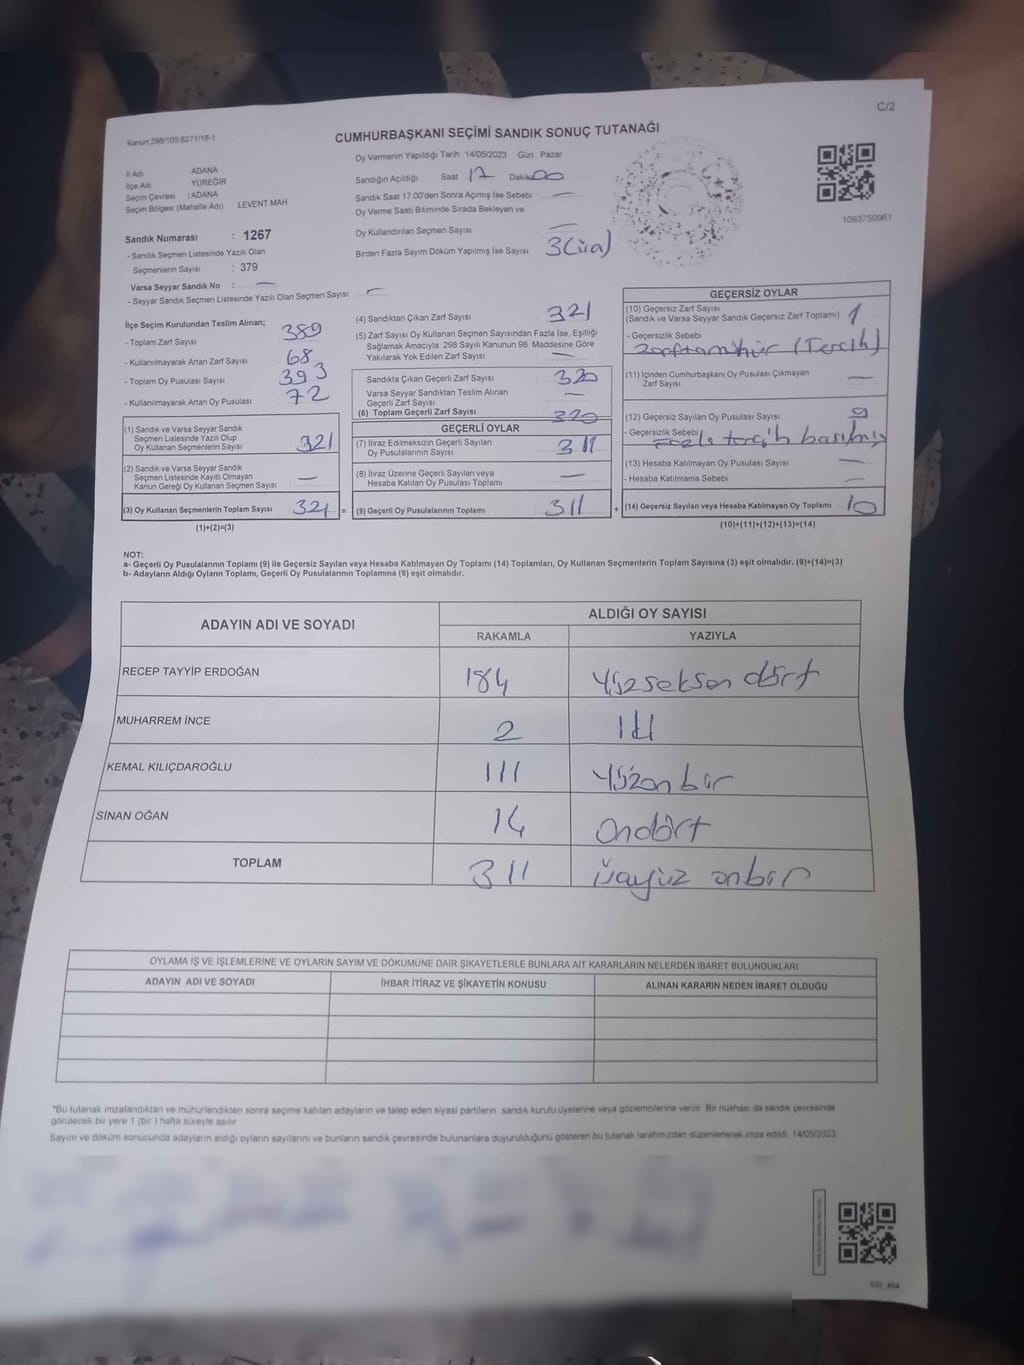 C/2
Kanun:298/105:6271/18-1
CUMHURBAŞKANI SEÇİMİ SANDIK SONUÇ TUTANAĞI
1093750961
İl Adı ADANA
İlçe Adı YÜREĞİR
Seçim Çevresi : ADANA
Seçim Bölgesi (Mahalle Adı) LEVENT MAH
Sandık Numarası : 1267
- Sandık Seçmen Listesinde Yazılı Olan
Seçmenlerin Sayısı : 379
Varsa Seyyar Sandık No : —
- Seyyar Sandık Seçmen Listesinde Yazılı Olan Seçmen Sayısı —
Oy Vermenin Yapıldığı Tarih 14/05/2023 Gün Pazar
Sandığın Açıldığı Saat 17 Dakika 00
Sandık Saat 17.00'den Sonra Açımış İse Sebebi —
Oy Verme Saati Bitiminde Sırada Bekleyen ve
Oy Kullandırılan Seçmen Sayısı —
Birden Fazla Sayım Döküm Yapılmış İse Sayısı 3(üç)
İlçe Seçim Kurulundan Teslim Alınan;
- Toplam Zarf Sayısı 389
- Kullanılmayarak Artan Zarf Sayısı 68
- Toplam Oy Pusulası Sayısı 393
- Kullanılmayarak Artan Oy Pusulası 72
(1) Sandık ve Varsa Seyyar Sandık
Seçmen Listesinde Yazılı Olup
Oy Kullanan Seçmenlerin Sayısı 321
(2) Sandık ve Varsa Seyyar Sandık
Seçmen Listesinde Kayıtlı Olmayan
Kanun Gereği Oy Kullanan Seçmen Sayısı —
(3) Oy Kullanan Seçmenlerin Toplam Sayısı 321 =
(1)+(2)=(3)
(4) Sandıktan Çıkan Zarf Sayısı 321
(5) Zarf Sayısı Oy Kullanan Seçmen Sayısından Fazla İse, Eşitliği
Sağlamak Amacıyla; 298 Sayılı Kanunun 98. Maddesine Göre
Yakılarak Yok Edilen Zarf Sayısı —
Sandıkta Çıkan Geçerli Zarf Sayısı 320
Varsa Seyyar Sandıktan Teslim Alınan
Geçerli Zarf Sayısı —
(6) Toplam Geçerli Zarf Sayısı 320
GEÇERLİ OYLAR
(7) İtiraz Edilmeksizin Geçerli Sayılan
Oy Pusulalarının Sayısı 311
(8) İtiraz Üzerine Geçerli Sayılan veya
Hesaba Katılan Oy Pusulası Toplamı —
(9) Geçerli Oy Pusulalarının Toplamı 311 +
GEÇERSİZ OYLAR
(10) Geçersiz Zarf Sayısı
(Sandık ve Varsa Seyyar Sandık Geçersiz Zarf Toplamı) 1
- Geçersizlik Sebebi
Zarfta mühür (Tercih)
(11) İçinden Cumhurbaşkanı Oy Pusulası Çıkmayan
Zarf Sayısı —
(12) Geçersiz Sayılan Oy Pusulası Sayısı 9
- Geçersizlik Sebebi Fazla tercih basılmış
(13) Hesaba Katılmayan Oy Pusulası Sayısı —
- Hesaba Katılmama Sebebi —
(14) Geçersiz Sayılan veya Hesaba Katılmayan Oy Toplamı 10
(10)+(11)+(12)+(13)=(14)
NOT:
a- Geçerli Oy Pusulalarının Toplamı (9) ile Geçersiz Sayılan veya Hesaba Katılmayan Oy Toplamı (14) Toplamları, Oy Kullanan Seçmenlerin Toplam Sayısına (3) eşit olmalıdır. (9)+(14)=(3)
b- Adayların Aldığı Oyların Toplamı, Geçerli Oy Pusulalarının Toplamına (9) eşit olmalıdır.
ADAYIN ADI VE SOYADI ALDIĞI OY SAYISI
RAKAMLA YAZIYLA
RECEP TAYYİP ERDOĞAN 184 yüzseksen dört
MUHARREM İNCE 2 iki
KEMAL KILIÇDAROĞLU 111 yüzonbir
SİNAN OĞAN 14 ondört
TOPLAM 311 üçyüz onbir
OYLAMA İŞ VE İŞLEMLERİNE VE OYLARIN SAYIM VE DÖKÜMÜNE DAİR ŞİKAYETLERLE BUNLARA AİT KARARLARIN NELERDEN İBARET BULUNDUKLARI
ADAYIN ADI VE SOYADI İHBAR İTİRAZ VE ŞİKAYETİN KONUSU ALINAN KARARIN NEDEN İBARET OLDUĞU
*Bu tutanak imzalandıktan ve mühürlendikten sonra seçime katılan adayların ve talep eden siyasi partilerin sandık kurulu üyelerine veya gözlemcilerine verilir. Bir nüshası da sandık çevresinde
görülecek bir yere 1 (bir) hafta süreyle asılır.
Sayım ve döküm sonucunda adayların aldığı oyların sayılarını ve bunların sandık çevresinde bulunanlara duyurulduğunu gösteren bu tutanak tarafımızdan düzenlenerek imza edildi. 14/05/2023